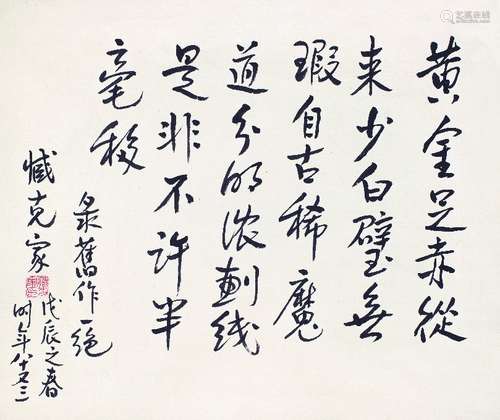 黄金足赤從
来少白璧無
瑕自古稀魔
道分明浓劃线
是非不許半
毫移
录舊作一绝
臧克家
戊辰之春
时年八十又三